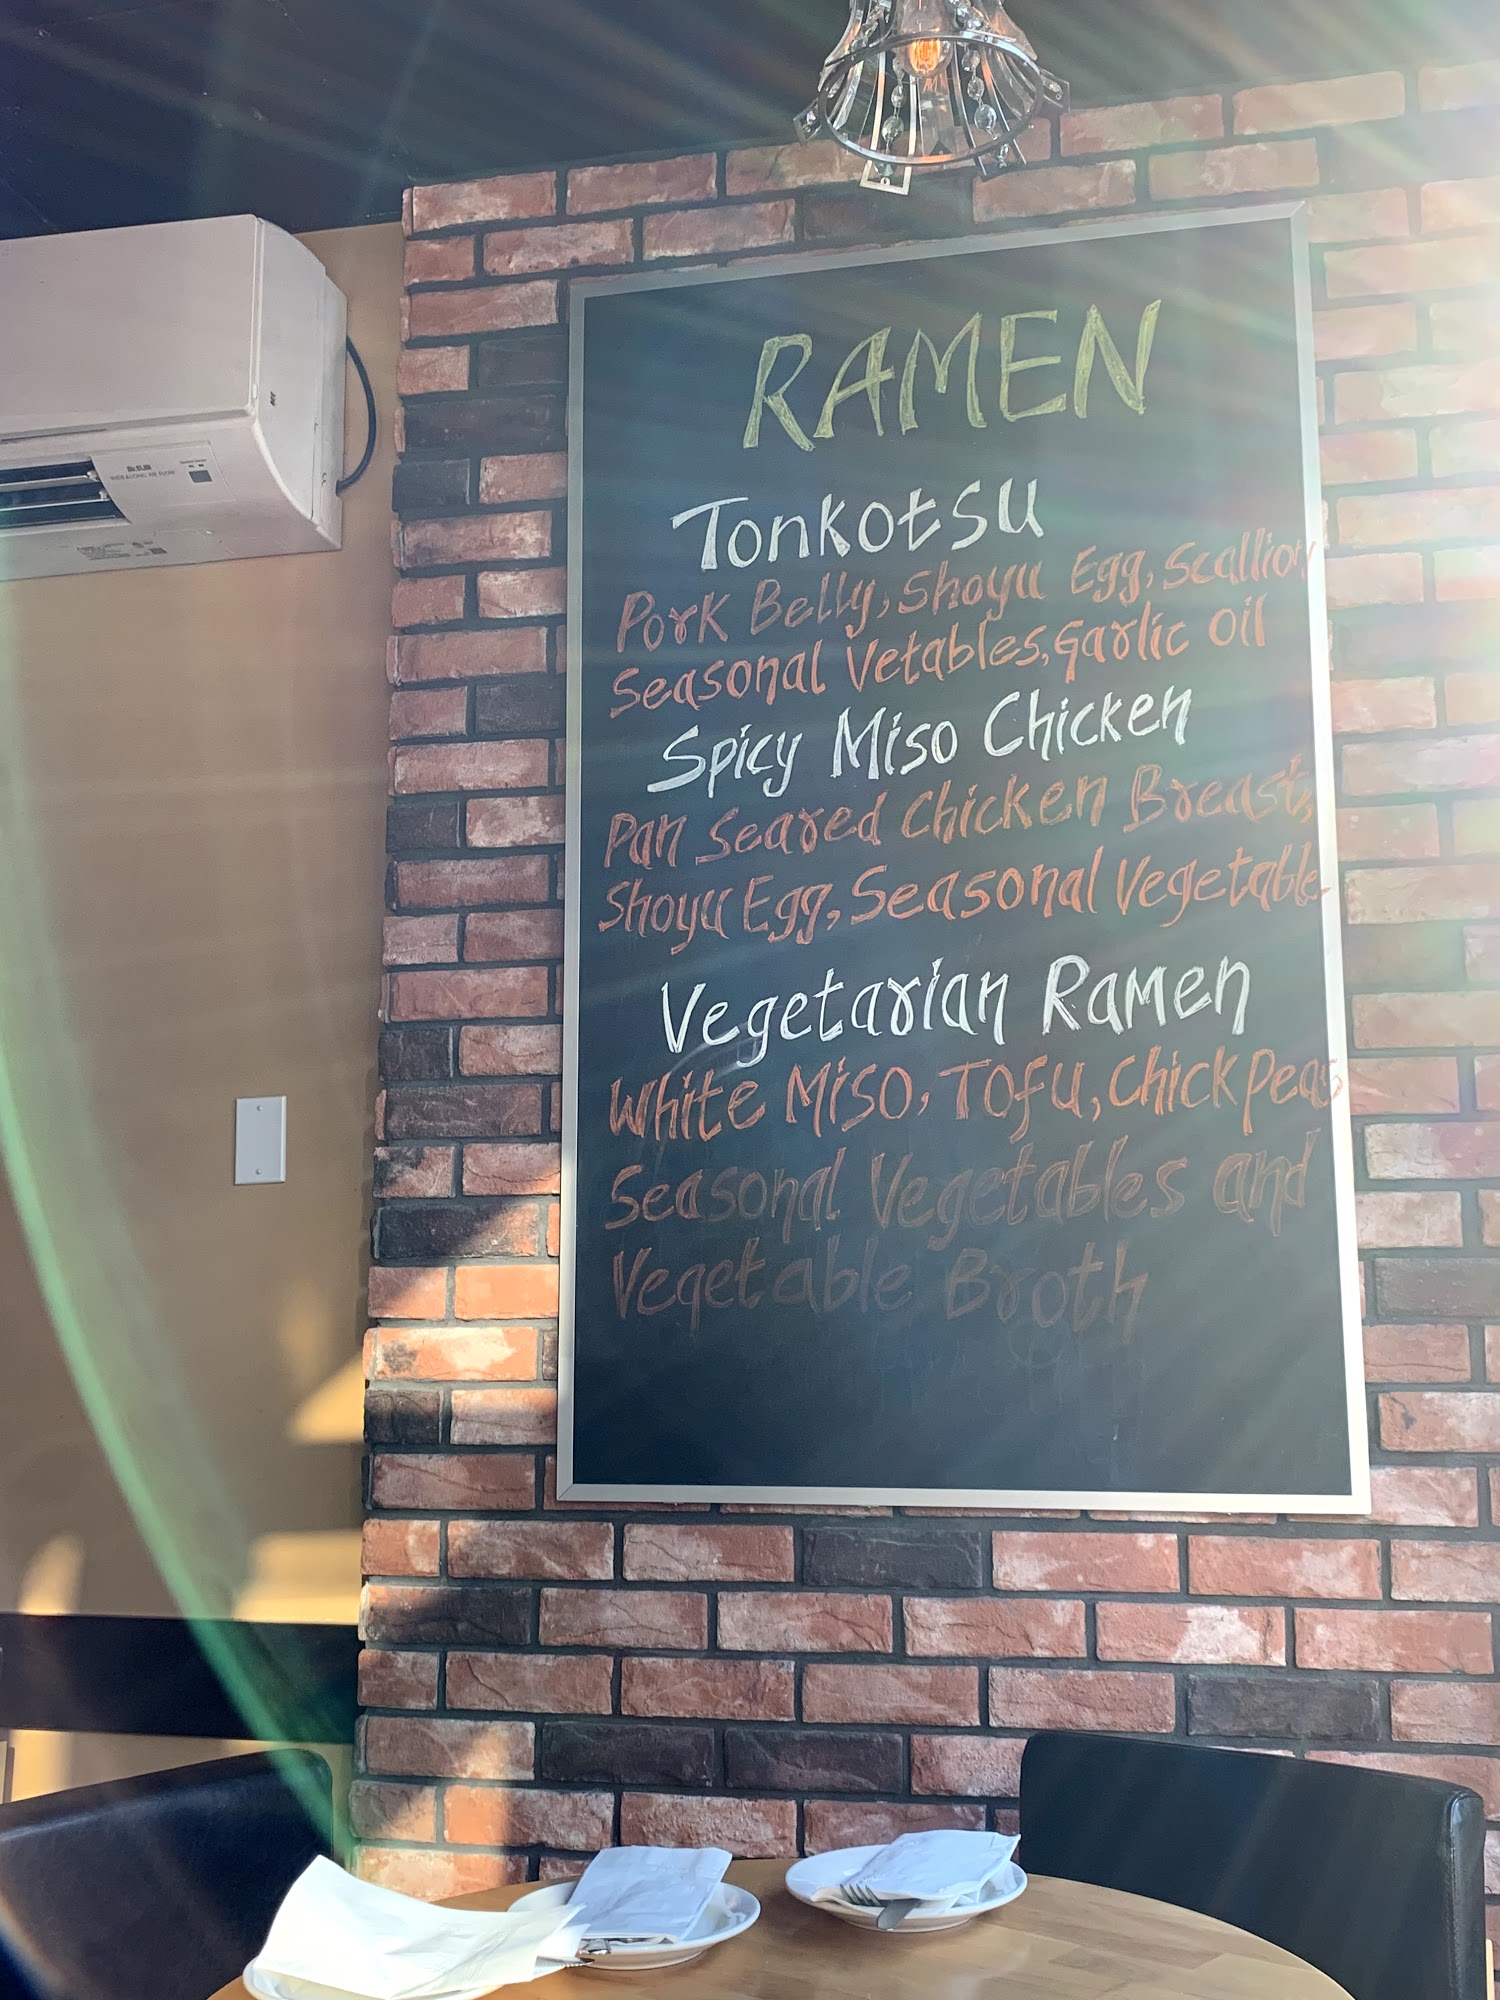 RAMEN
Tonkotsu
Pork Belly, Shoyu Egg, Scallion
Seasonal Vetables, Garlic Oil
Spicy Miso Chicken
Pan Seared Chicken Breast,
Shoyu Egg, Seasonal Vegetable
Vegetarian Ramen
White Miso, Tofu, Chickpeas
Seasonal Vegetables and
Vegetable Broth